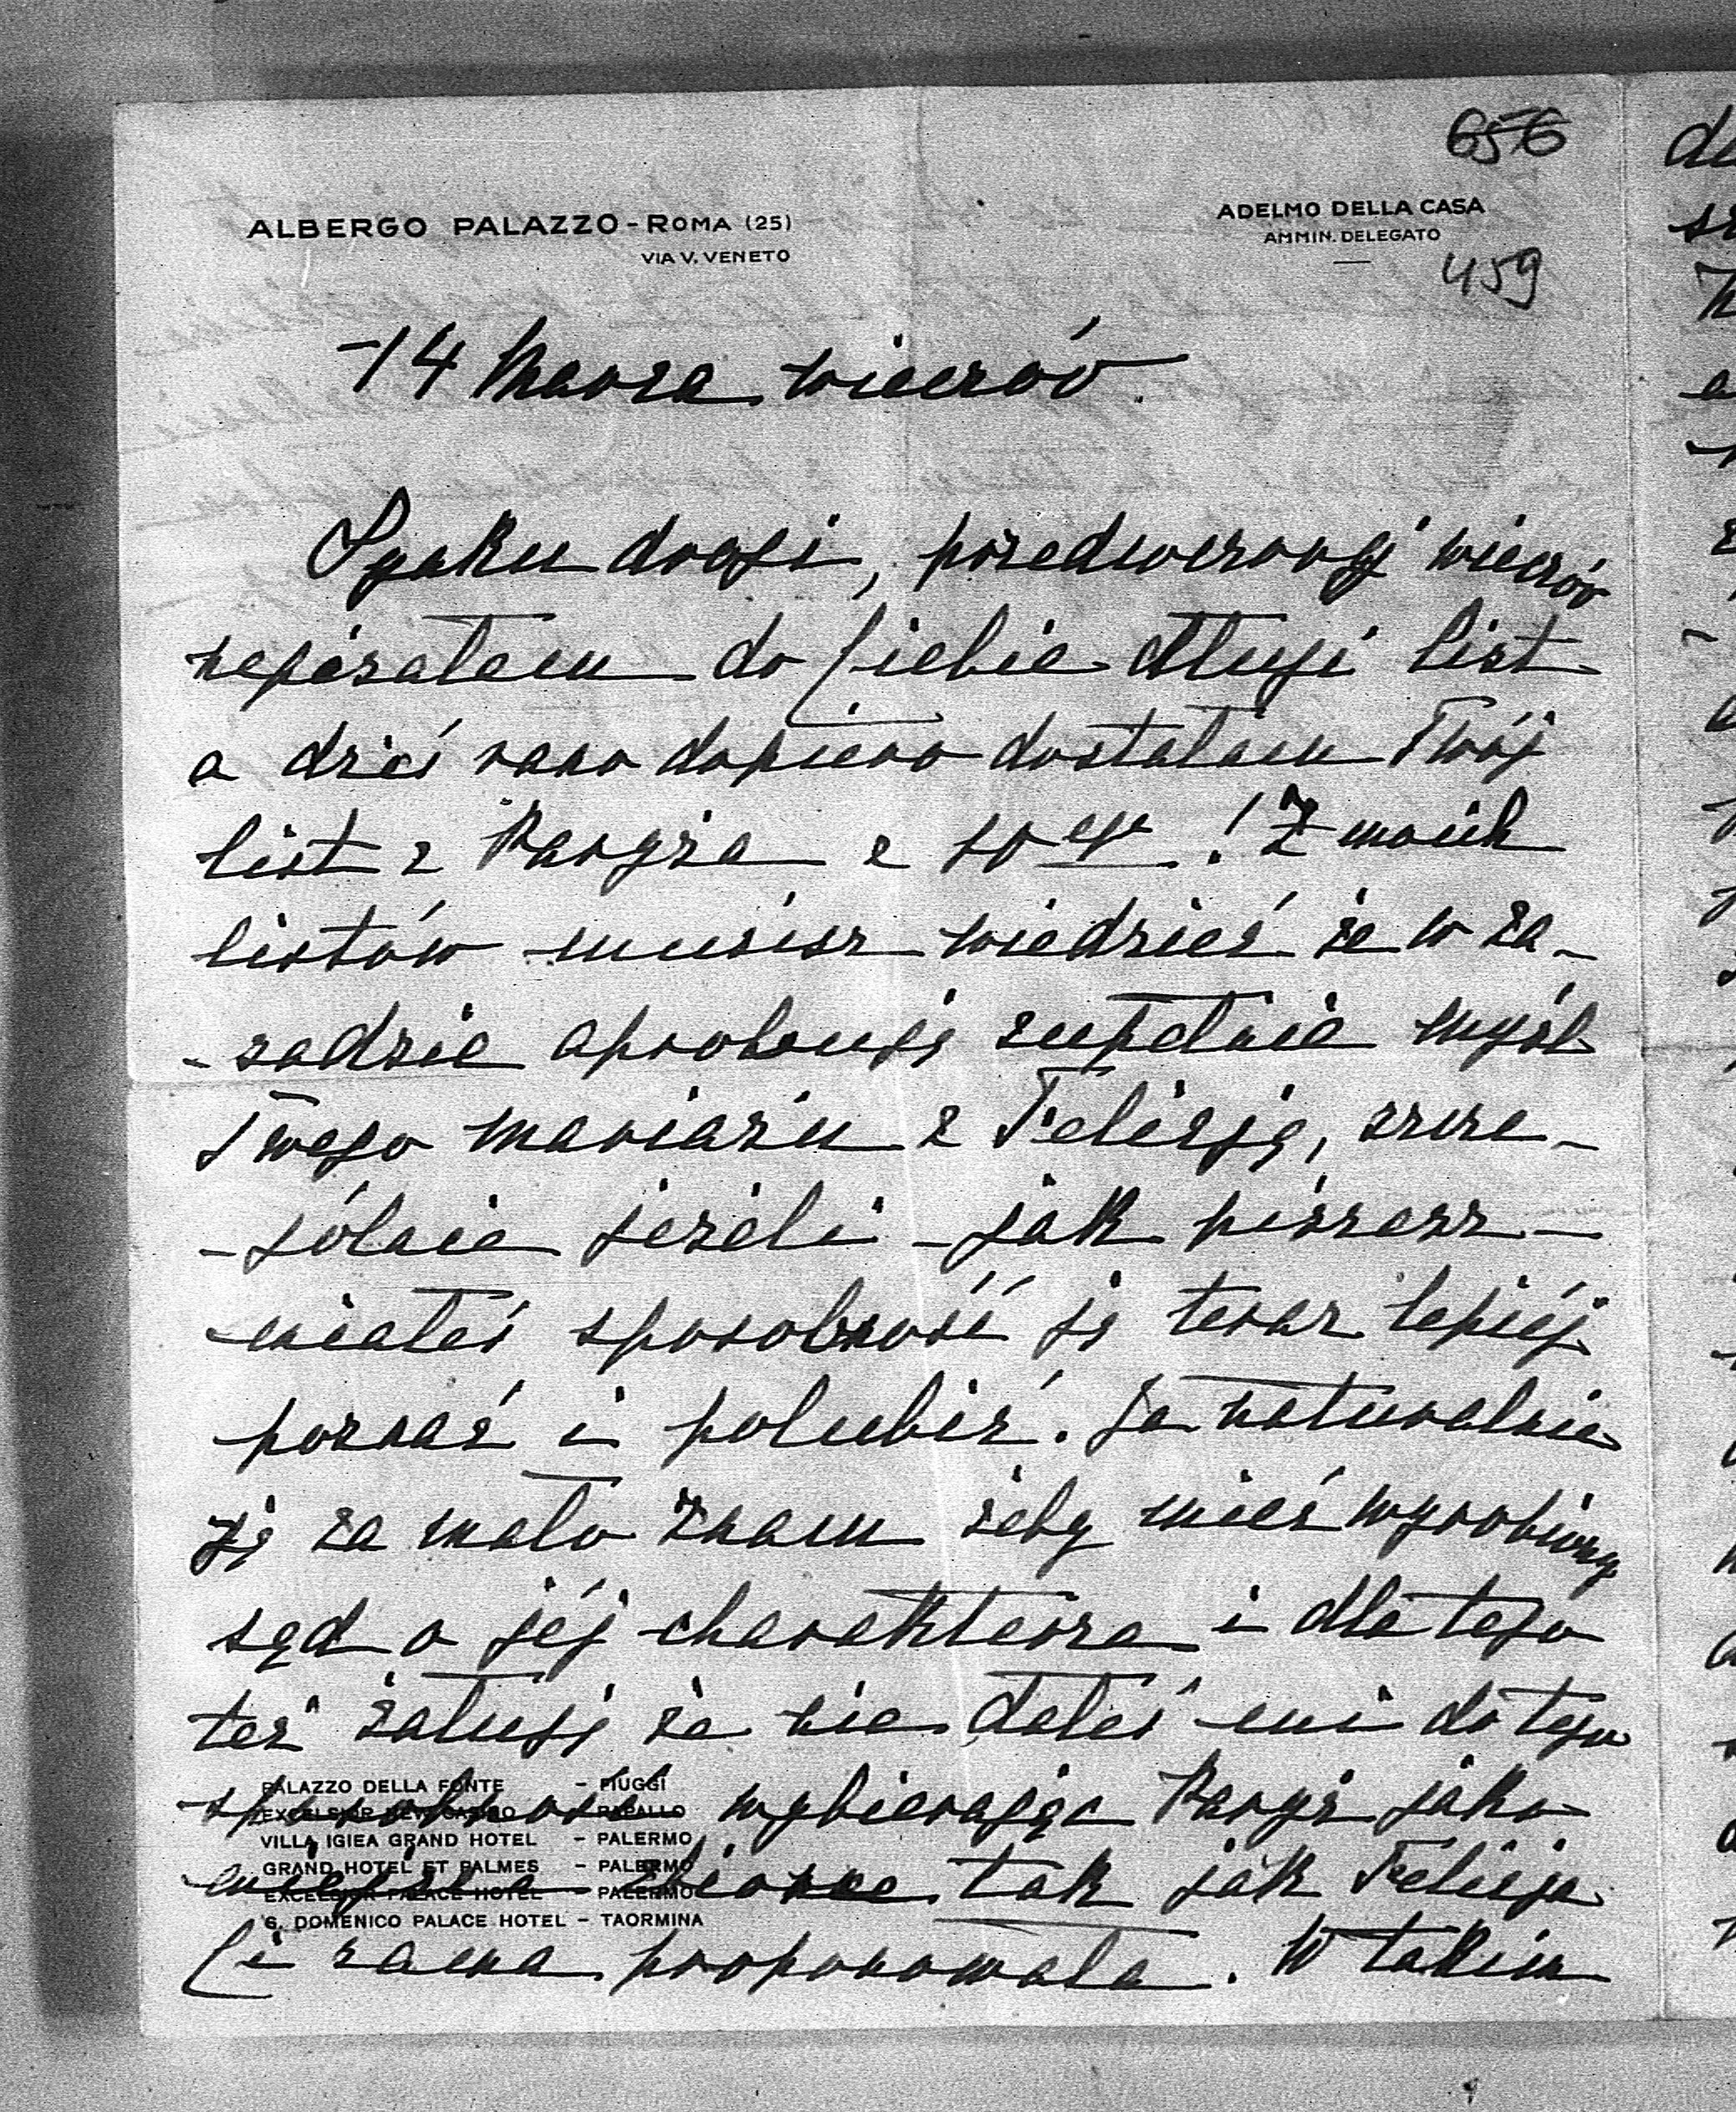 656
ALBERGO PALAZZO - ROMA (25)
VIA V. VENETO
ADELMO DELLA CASA
AMMIN. DELEGATO
459
14 Marca wieczór
Synku drogi, przedwczoraj wieczór
napisałem do Ciebie długi list
a dziś rano dopiero dostałem Twój
list z Paryża z 10go! Z moich
listów musisz wiedzieć że w za-
-sadzie aprobuję zupełnie myśl
Twego mariażu z Felicją, szcze-
-gólnie jeżeli - jak piszesz -
miałeś sposobność ją teraz lepiéj
poznać i polubić. Ja naturalnie
ją za mało znam żeby mieć wyrobiony
sąd o jéj charakterze i dla tego
też żałuję że nie dałeś mi do tego
sposobności wybierając Paryż jako
miejsce zborne tak jak Felicja
Ci sama proponowała. W takim
PALAZZO DELLA FONTE - FIUGGI
EXCELSIOR NEW CASINO - RAPALLO
VILLA IGIEA GRAND HOTEL - PALERMO
GRAND HOTEL ET PALMES - PALERMO
EXCELSIOR PALACE HOTEL - PALERMO
S. DOMENICO PALACE HOTEL - TAORMINA